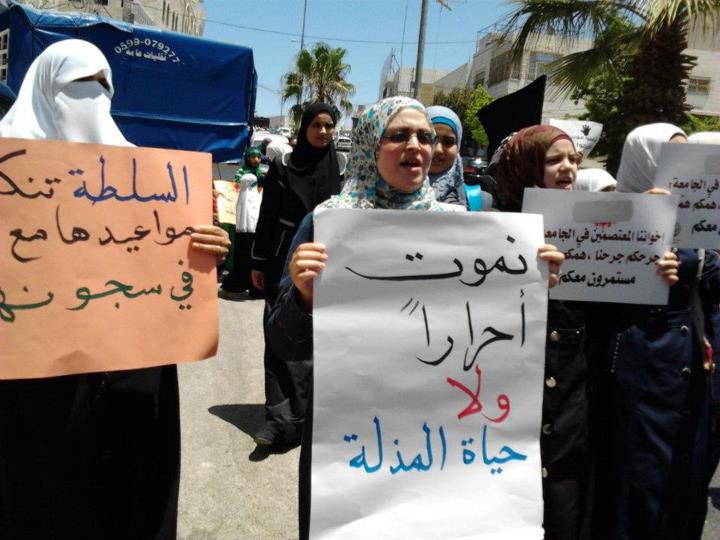 0599-079277
نقليات عامة
السلطة
مواعيدها مع
في سجونها
نموت
أحراراً
ولا
حياة المذلة
اخواتنا المعتصمين في الجامعة
جرحكم جرحنا ، همكم
مستمرون معكم
في الجامعة
معكم